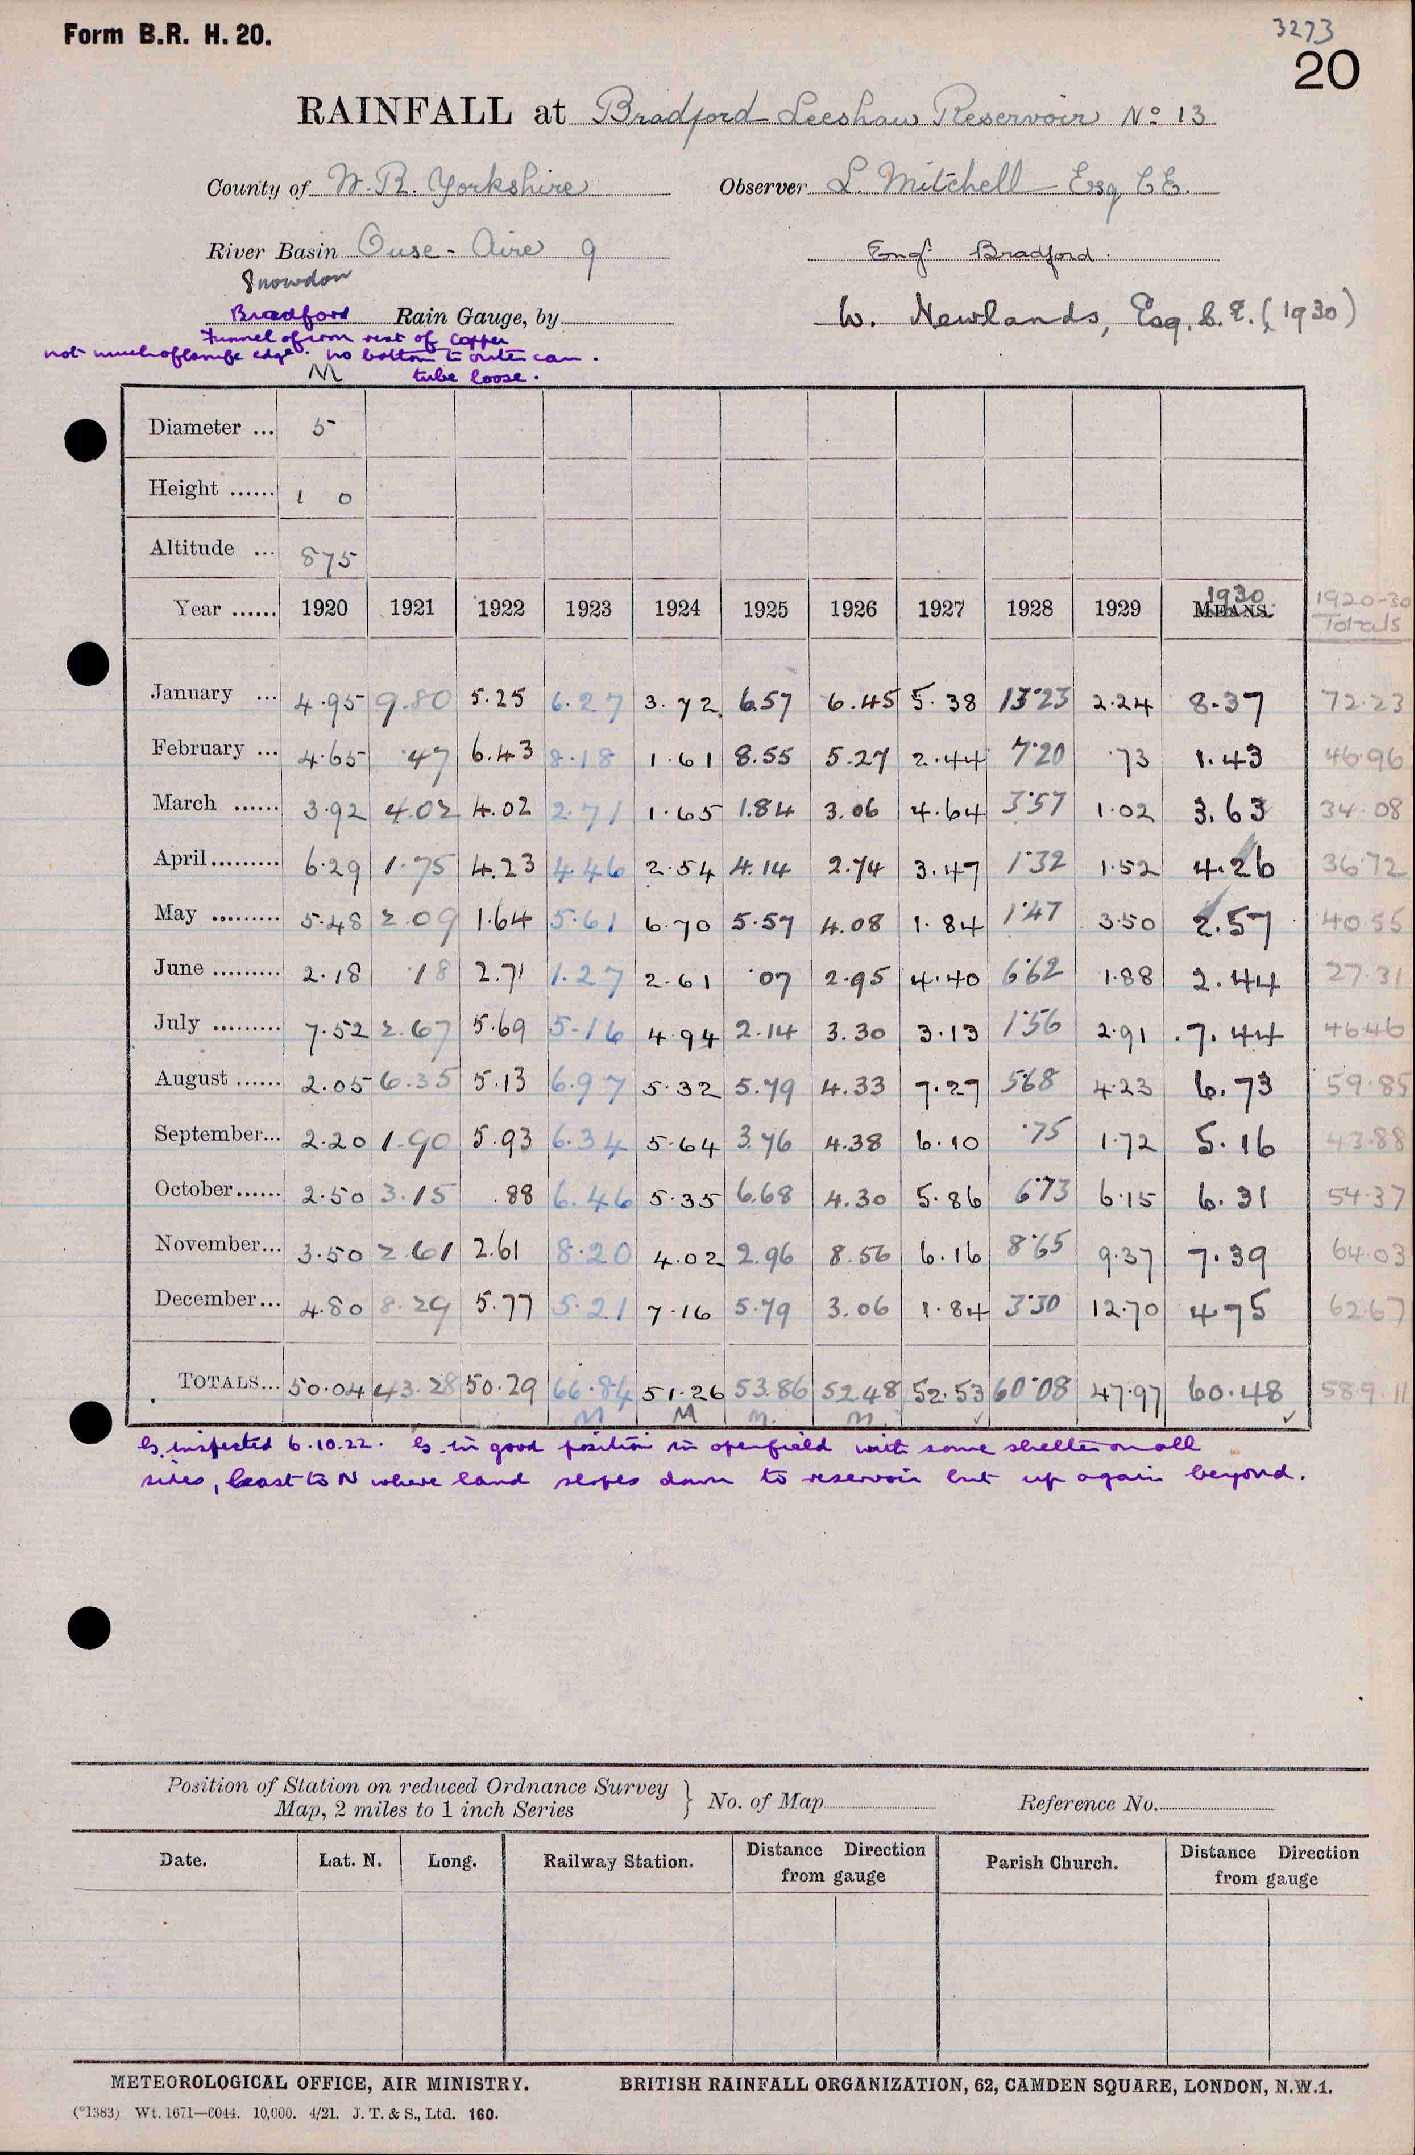 Form B.R. H. 20.
3273
20
RAINFALL at Bradford Leeshaw Reservoir No 13
County of W. R. Yorkshire Observer L. Mitchell Esq C.E.
River Basin Ouse - Aire 9 Engr Bradford.
Snowdon
Bradford Rain Gauge, by W. Newlands, Esq. C.E. (1930)
Funnel of iron rest of copper
not much of flange edge. no bottom to outer can.
M tube loose.
Diameter ... 5
Height ...... 1 0
Altitude ... 875
Year ...... 1920 1921 1922 1923 1924 1925 1926 1927 1928 1929 MEANS. 1930 1920-30 Totals
January ... 4.95 9.80 5.25 6.27 3.72 6.57 6.45 5.38 13.23 2.24 8.37 72.23
February ... 4.65 .47 6.43 8.18 1.61 8.55 5.27 2.44 7.20 .73 1.43 46.96
March ...... 3.92 4.02 4.02 2.71 1.65 1.84 3.06 4.64 3.57 1.02 3.63 34.08
April ......... 6.29 1.75 4.23 4.46 2.54 4.14 2.74 3.47 1.32 1.52 4.26 36.72
May ......... 5.48 2.09 1.64 5.61 6.70 5.57 4.08 1.84 1.47 3.50 2.57 40.55
June ......... 2.18 .18 2.71 1.27 2.61 .07 2.95 4.40 6.62 1.88 2.44 27.31
July ......... 7.52 2.67 5.69 5.16 4.94 2.14 3.30 3.13 1.56 2.91 7.44 46.46
August ...... 2.05 6.35 5.13 6.97 5.32 5.79 4.33 7.27 5.68 4.23 6.73 59.85
September... 2.20 1.90 5.93 6.34 5.64 3.76 4.38 6.10 .75 1.72 5.16 43.88
October...... 2.50 3.15 .88 6.46 5.35 6.68 4.30 5.86 6.73 6.15 6.31 54.37
November... 3.50 2.61 2.61 8.20 4.02 2.96 8.56 6.16 8.65 9.37 7.39 64.03
December... 4.80 8.29 5.77 5.21 7.16 5.79 3.06 1.84 3.30 12.70 4.75 62.67
TOTALS... 50.04 43.28 50.29 66.84 51.26 53.86 52.48 52.53 60.08 47.97 60.48 589.11
M M m. m. ✓ ✓
G. inspected 6.10.22. G. in good position in open field with some shelter on all
sides, least to N where land slopes down to reservoir but up again beyond.
Position of Station on reduced Ordnance Survey
Map, 2 miles to 1 inch Series } No. of Map Reference No.
Date. Lat. N. Long. Railway Station. Distance Direction from gauge Parish Church. Distance Direction from gauge
METEOROLOGICAL OFFICE, AIR MINISTRY. BRITISH RAINFALL ORGANIZATION, 62, CAMDEN SQUARE, LONDON, N.W.1.
(*1383) Wt. 1671—6044. 10,000. 4/21. J. T. & S., Ltd. 160.